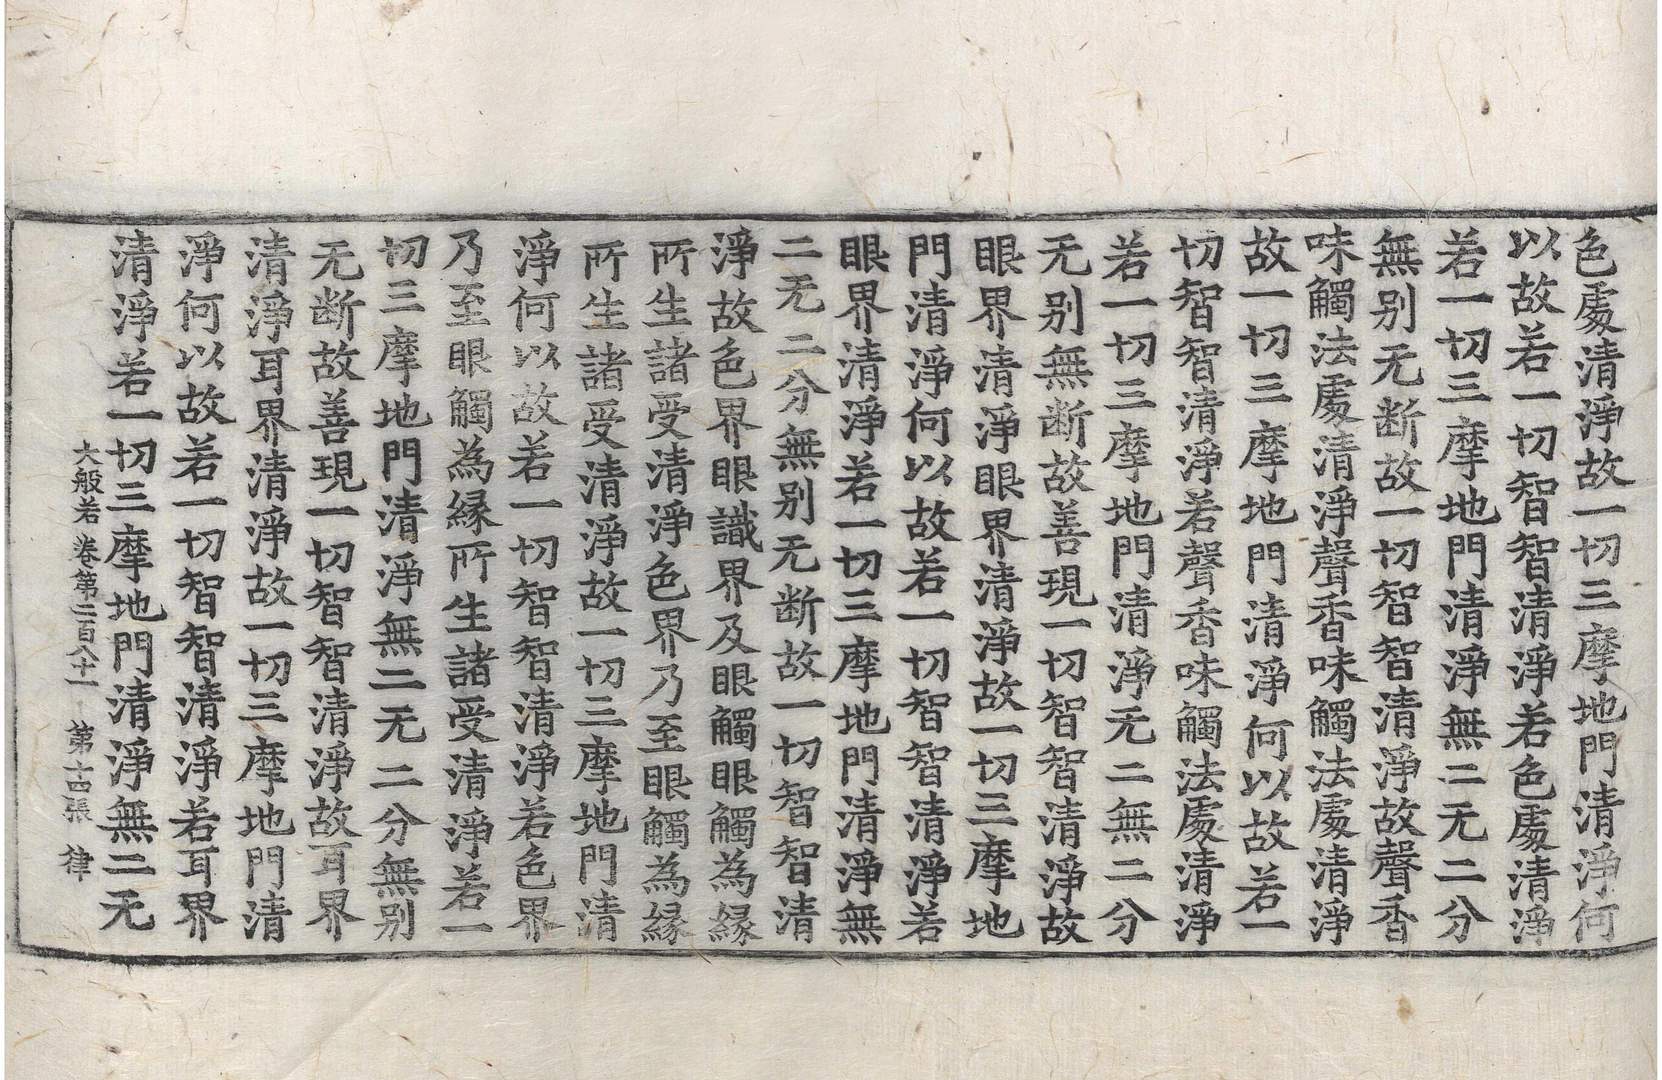 色處清淨故一切三摩地門清淨何
以故若一切智智清淨若色處清淨
若一切三摩地門清淨無二无二分
無別无断故一切智智清淨故聲香
味觸法處清淨聲香味觸法處清淨
故一切三摩地門清淨何以故若一
切智智清淨若聲香味觸法處清淨
若一切三摩地門清淨无二無二分
无別無断故善現一切智智清淨故
眼界清淨眼界清淨故一切三摩地
門清淨何以故若一切智智清淨若
眼界清淨若一切三摩地門清淨無
二无二分無別无断故一切智智清
淨故色界眼識界及眼觸眼觸為縁
所生諸受清淨色界乃至眼觸為縁
所生諸受清淨故一切三摩地門清
淨何以故若一切智智清淨若色界
乃至眼觸為縁所生諸受清淨若一
切三摩地門清淨無二无二分無別
无断故善現一切智智清淨故耳界
清淨耳界清淨故一切三摩地門清
淨何以故若一切智智清淨若耳界
清淨若一切三摩地門清淨無二无
大般若卷第二百八十一 第十四張 律